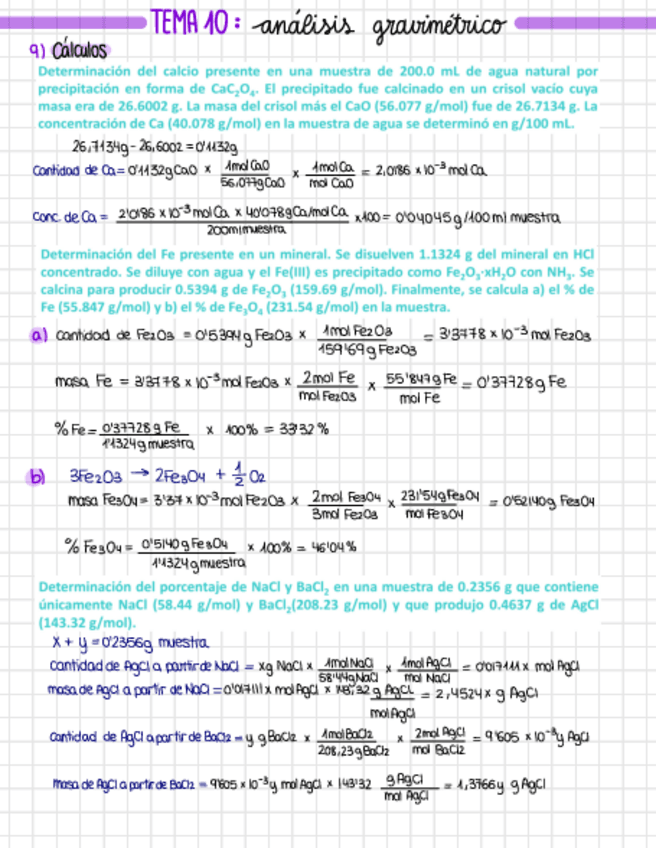 TEMA 10: análisis gravimétrico
a) Cálculos
Determinación del calcio presente en una muestra de 200.0 mL de agua natural por
precipitación en forma de CaC₂O₄. El precipitado fue calcinado en un crisol vacío cuya
masa era de 26.6002 g. La masa del crisol más el CaO (56.077 g/mol) fue de 26.7134 g. La
concentración de Ca (40.078 g/mol) en la muestra de agua se determinó en g/100 mL.
26,7134g - 26,6002 = 0'1132g
Cantidad de Ca = 0'1132g CaO × 1mol CaO / 56,077g CaO × 1mol Ca / mol CaO = 2,0186 × 10⁻³ mol Ca
Conc. de Ca = 2'0186 × 10⁻³ mol Ca × 40'078g Ca/mol Ca / 200ml muestra × 100 = 0'04045g/100ml muestra
Determinación del Fe presente en un mineral. Se disuelven 1.1324 g del mineral en HCl
concentrado. Se diluye con agua y el Fe(III) es precipitado como Fe₂O₃·xH₂O con NH₃. Se
calcina para producir 0.5394 g de Fe₂O₃ (159.69 g/mol). Finalmente, se calcula a) el % de
Fe (55.847 g/mol) y b) el % de Fe₃O₄ (231.54 g/mol) en la muestra.
a) cantidad de Fe₂O₃ = 0'5394g Fe₂O₃ × 1mol Fe₂O₃ / 159'69g Fe₂O₃ = 3'3778 × 10⁻³ mol Fe₂O₃
masa Fe = 3'3778 × 10⁻³ mol Fe₂O₃ × 2mol Fe / mol Fe₂O₃ × 55'847g Fe / mol Fe = 0'37728g Fe
% Fe = 0'37728g Fe / 1'1324g muestra × 100% = 33'32%
b) 3Fe₂O₃ → 2Fe₃O₄ + 1/2 O₂
masa Fe₃O₄ = 3'37 × 10⁻³ mol Fe₂O₃ × 2mol Fe₃O₄ / 3mol Fe₂O₃ × 231'54g Fe₃O₄ / mol Fe₃O₄ = 0'52140g Fe₃O₄
% Fe₃O₄ = 0'5140g Fe₃O₄ / 1'1324g muestra × 100% = 46'04%
Determinación del porcentaje de NaCl y BaCl₂ en una muestra de 0.2356 g que contiene
únicamente NaCl (58.44 g/mol) y BaCl₂(208.23 g/mol) y que produjo 0.4637 g de AgCl
(143.32 g/mol).
X + y = 0'2356g muestra
cantidad de AgCl a partir de NaCl = xg NaCl × 1mol NaCl / 58'44g NaCl × 1mol AgCl / mol NaCl = 0'017111x mol AgCl
masa de AgCl a partir de NaCl = 0'017111x mol AgCl × 143,32 g AgCl / mol AgCl = 2,4524x g AgCl
cantidad de AgCl a partir de BaCl₂ = y g BaCl₂ × 1mol BaCl₂ / 208,23g BaCl₂ × 2mol AgCl / mol BaCl₂ = 9'605 × 10⁻³y AgCl
masa de AgCl a partir de BaCl₂ = 9'605 × 10⁻³y mol AgCl × 143'32 g AgCl / mol AgCl = 1,3766y g AgCl